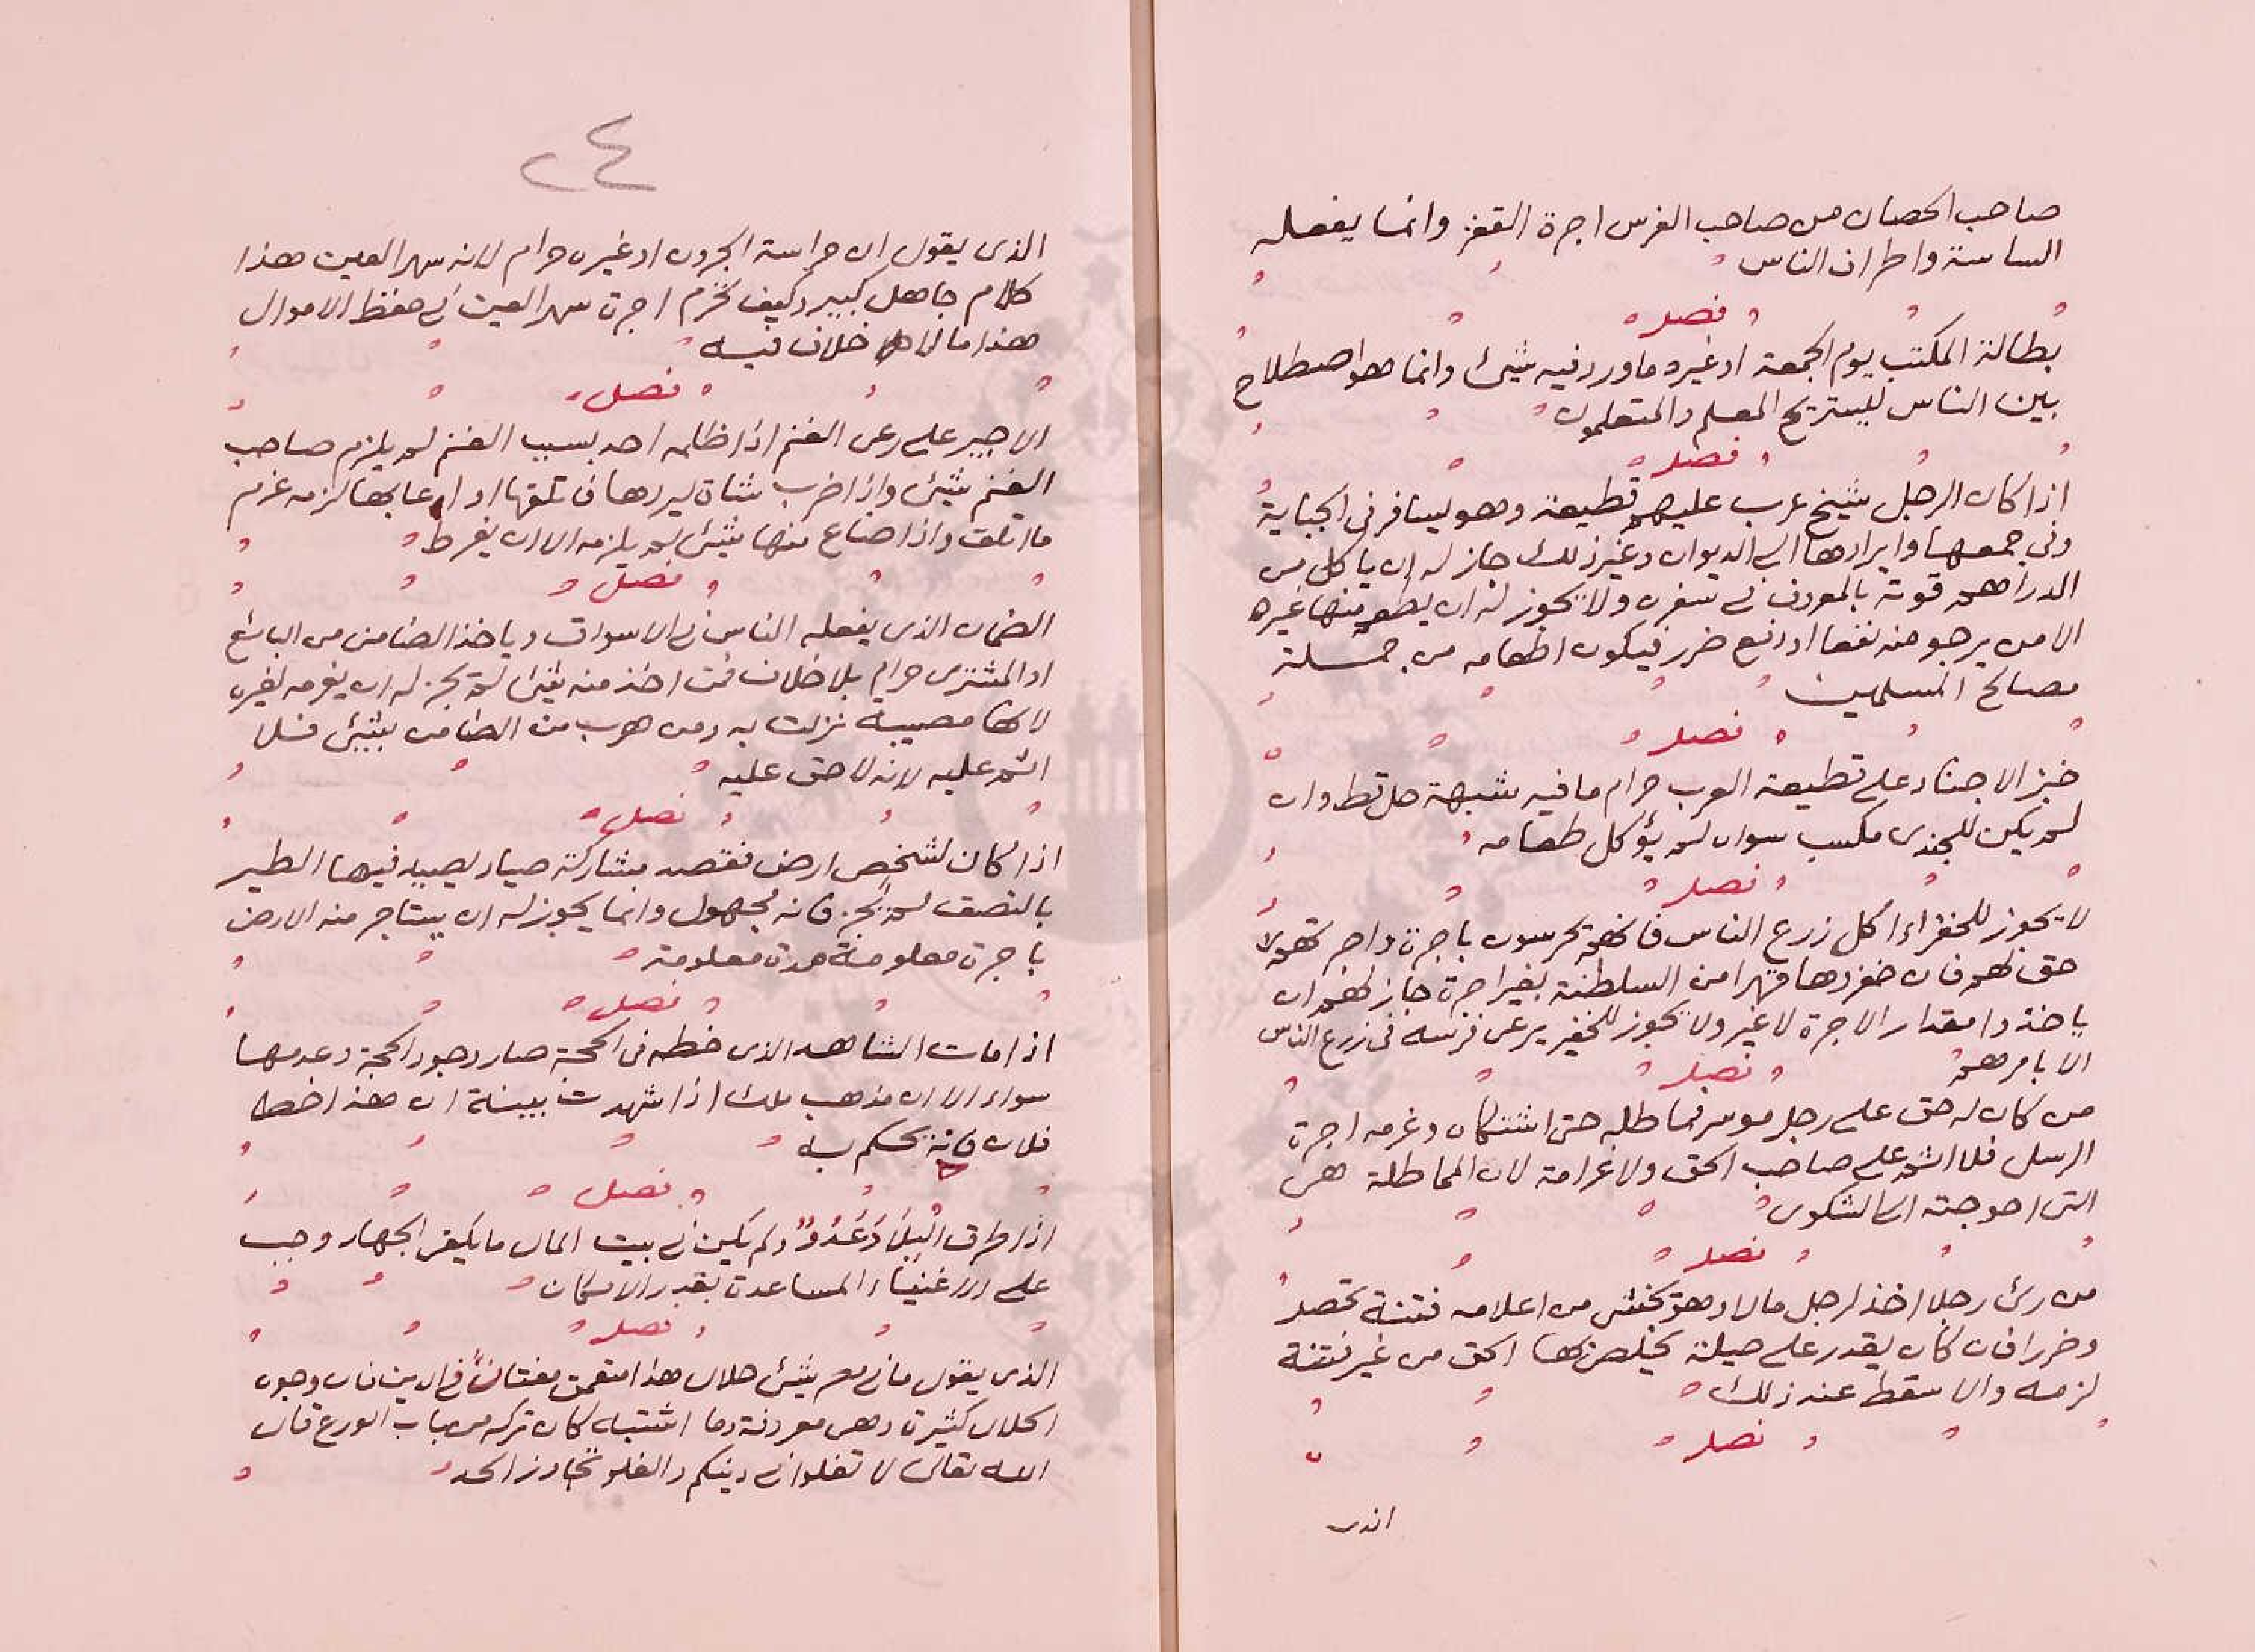 صاحب الحصان من صاحب الفرس اجرة القفز وانما يفعله
الساسة واطراف الناس
فصل
بطالة المكتب يوم الجمعة او غيره ما ورد فيه شيئ وانما هو اصطلاح
بين الناس ليستريح المعلم والمتعلمون
فصل
اذا كان الرجل شيخ عرب عليهم قطيعة وهو يسافر فى الجباية
وفى جمعها وايرادها الى الديوان وغير ذلك جاز له ان ياكل من
الدراهم قوته بالمعروف فى سفره ولا يجوز له ان يطعم منها غيره
الا من يرجو منه نفعا او دفع ضرر فيكون اطعامه من جملة
مصالح المسلمين
فصل
خبز الاجناد على قطيعة العرب حرام ما فيه شبهة حل قط وان
لم يكن للجندى مكسب سواه لم يؤكل طعامه
فصل
لا يجوز للخفراء اكل زرع الناس فانهم يحرسون باجرة واجرتهم لا
حق لهم فان خفروها قهرا من السلطنة بغير اجرة جاز لهم ان
ياخذوا مقدار الاجرة لا غير ولا يجوز للخفير يرعى فرسه فى زرع الناس
الا بامرهم
فصل
من كان له حق على رجل موسر فماطله حتى اشتكاه وغرمه اجرة
الرسل فلا اثم على صاحب الحق ولا غرامة لان المماطلة هى
التى احوجته الى الشكوى
فصل
من رئ رجلا اخذ لرجل مالا وهو يخشى من اعلامه فتنة تحصل
وضررا فان كان يقدر على حيلة يخلص بها الحق من غير فتنة
لزمه والا سقط عنه ذلك
فصل
الذى
٢٤
الذى يقول ان حراسة الجرون او غيره حرام لانه سهر العين هذا
كلام جاهل كبير وكيف تحرم اجرة سهر العين فى حفظ الاموال
هذا ما لا خلاف فيه
فصل
الاجير على رعى الغنم اذا ظلمه احد بسبب الغنم لم يلزم صاحب
الغنم شيئ واذا ضرب شاة ليردها فاتلفها او اعابها لزمه غرم
ما اتلف واذا ضاع منها شيئ لم يلزمه الا ان يفرط
فصل
الضمان الذى يفعله الناس فى الاسواق وياخذ الضامن من البائع
او المشترى حرام بلا خلاف فمن اخذ منه شيئ لم يجز له ان يغرمه لغيره
لانها مصيبة نزلت به ومن هرب من الضامن بشيئ فلا
اثم عليه لانه لا حق عليه
فصل
اذا كان لشخص ارض فقصد مشاركة صياد يصيد فيها الطير
بالنصف لم يجز فانه مجهول وانما يجوز له ان يستاجر منه الارض
باجرة معلومة مدة معلومة
فصل
اذا مات الشاهد الذى خطه فى الحجة صار وجود الحجة وعدمها
سواء الا ان مذهب ملك اذا شهدت بينة ان هذا خط
فلان فانه يحكم به
فصل
اذا طرق البلاد عدو ولم يكن فى بيت المال ما يكفى الجهاد وجب
على الاغنياء المساعدة بقدر الامكان
فصل
الذى يقول ما فى مصر شيئ حلال هذا متعمق مفتات فى الدين فان وجوه
الحلال كثيرة وهى معروفة وما اشتبه كان تركه من باب الورع قال
الله تعالى لا تغلوا فى دينكم والغلو تجاوز الحد